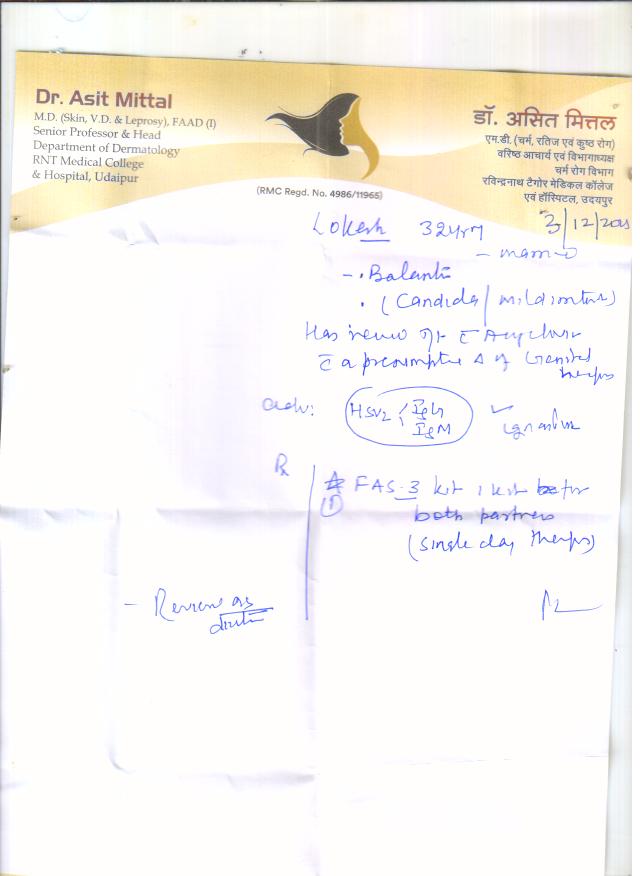 Dr. Asit Mittal
M.D. (Skin, V.D. & Leprosy), FAAD (I)
Senior Professor & Head
Department of Dermatology
RNT Medical College
& Hospital, Udaipur
(RMC Regd. No. 4986/11965)
डॉ. असित मित्तल
एम.डी. (चर्म, रतिज एवं कुष्ठ रोग)
वरिष्ठ आचार्य एवं विभागाध्यक्ष
चर्म रोग विभाग
रविन्द्रनाथ टैगोर मेडिकल कॉलेज
एवं हॉस्पिटल, उदयपुर
Lokesh 32
3/12/
(Candida / mild
Has
presumptive Δ of Genital
herpes
adv: HSV2 IgG
IgM
Rx
(1) FAS-3 kit 1 kit for
both partners
(single day
- Review as